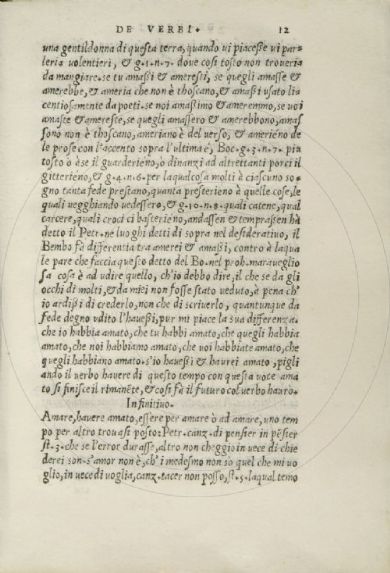 DE VERBI. 12
una gentildonna di questa terra, quando vi piacesse vi par-
leria volentieri, & g.1.n.7. dove cosi tosto non troveria
da mangiare. se tu amassi & ameresti, se quegli amasse &
amerebbe, & ameria che non è thoscano, & amassi usato li
centiosamente da poeti. se noi amassimo & ameremmo, se voi
amaste & amereste, se quegli amassero & amerebbono, amas
sono non è thoscano, ameriano è del verso, & amerièno de
le prose con l'accento sopra l'ultima è, Boc. g.3.n.7. piu
tosto ò ese il guarderieno, ò dinanzi ad altrettanti porci il
gitterièno, & g.4.n.6. per laqualcosa molti à ciascuno so-
gno tanta fede prestano, quanta presterieno è quelle cose, le
quali vegghiando vedessero, & g.10.n.8. quali catene, qual
carcere, quali croci ci basterièno, andassen & temprassen hà
detto il Petr. ne luoghi detti di sopra nel desiderativo, il
Bembo fà differentia tra amerei & amassi, contro è laqua
le pare che faccia questo detto del Bo. nel proh. maraueglio
sa cosa è ad udire quello, ch'io debbo dire, il che se da gli
occhi di molti, & da miei non fosse stato veduto, à pena ch'
io ardissi di crederlo, non che di scriuerlo, quantunque da
fede degno vdito l'hauessi, pur mi piace la sua differenza.
che io habbia amato, che tu habbi amato, che quegli habbia
amato, che noi habbiamo amato, che voi habbiate amato, che
quegli habbiano amato. s'io hauessi & haurei amato, pigli
ando il verbo havere di questo tempo con questa voce ama
to si finisce il rimanēte, & cosi fà il futuro col verbo hauro.
Infinitivo.
Amare, havere amato, essere per amare ò ad amare, uno tem
po per altro trouasi posto: Petr. canz. di pensier in pēsier
st.3. che se l'error durasse, altro non cheggio in uece di chie
derei son. s'amor non è, ch'i medesmo non so quel che mi vo
glio, in uece di voglia, canz. tacer non posso, st.5. laqual temo